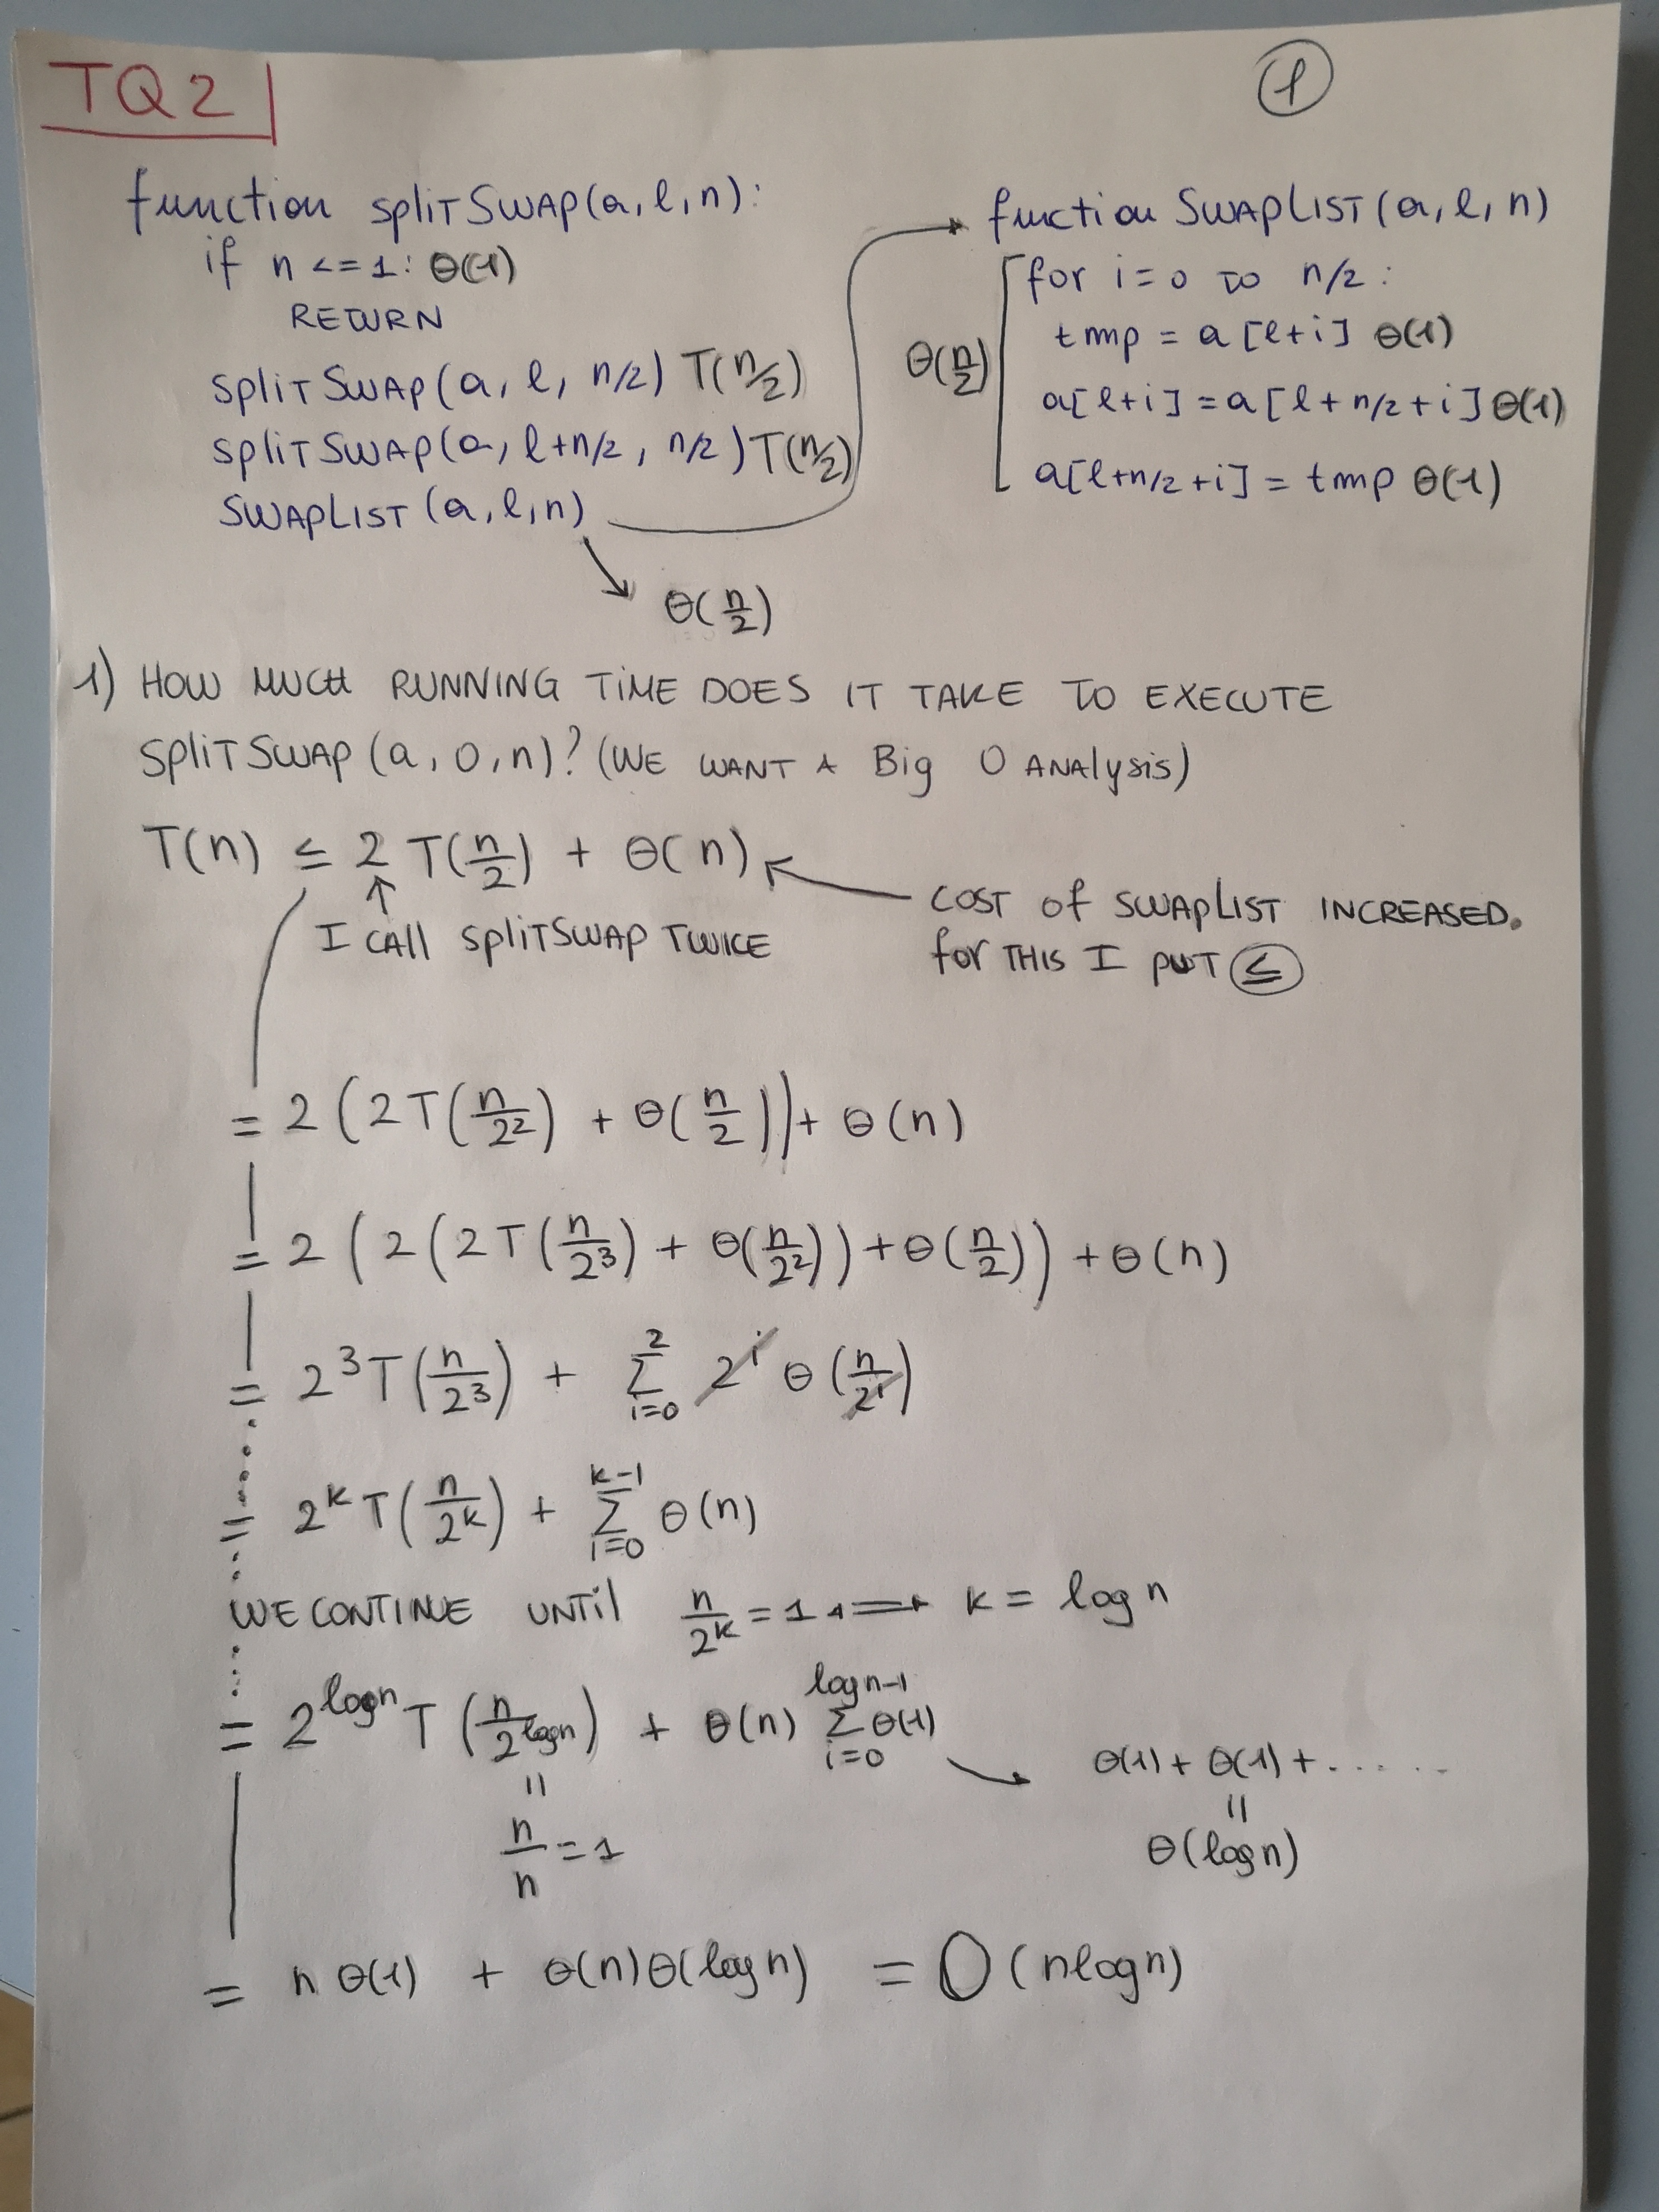 TQ2
1
function splitSWAP(a, l, n):
if n <= 1: θ(1)
RETURN
splitSWAP(a, l, n/2) T(n/2)
splitSWAP(a, l+n/2, n/2) T(n/2)
SWAPLIST (a, l, n)
θ(n/2)
fuction SWAPLIST (a, l, n)
θ(n/2)
for i=0 TO n/2:
tmp = a[l+i] θ(1)
a[l+i] = a[l+n/2+i] θ(1)
a[l+n/2+i] = tmp θ(1)
1) HOW MUCH RUNNING TIME DOES IT TAKE TO EXECUTE
splitSWAP (a, 0, n)? (WE WANT A Big O ANAlysis)
T(n) ≤ 2 T(n/2) + θ(n)
↑
I CAll splitSWAP TWICE
COST of SWAPLIST INCREASED.
for THIS I PUT ≤
= 2 (2T(n/2²) + θ(n/2)) + θ(n)
= 2 (2 (2T(n/2³) + θ(n/2²)) + θ(n/2)) + θ(n)
= 2³T(n/2³) + Σ_{i=0}^{2} 2^i θ(n/2^i)
= 2^k T(n/2^k) + Σ_{i=0}^{k-1} θ(n)
WE CONTINUE UNTIl n/2^k = 1 ⟺ k = log n
= 2^{log n} T(n/2^{log n}) + θ(n) Σ_{i=0}^{log n-1} θ(1)
=
n/n = 1
θ(1) + θ(1) + .....
=
θ(log n)
= n θ(1) + θ(n)θ(log n) = O(n log n)